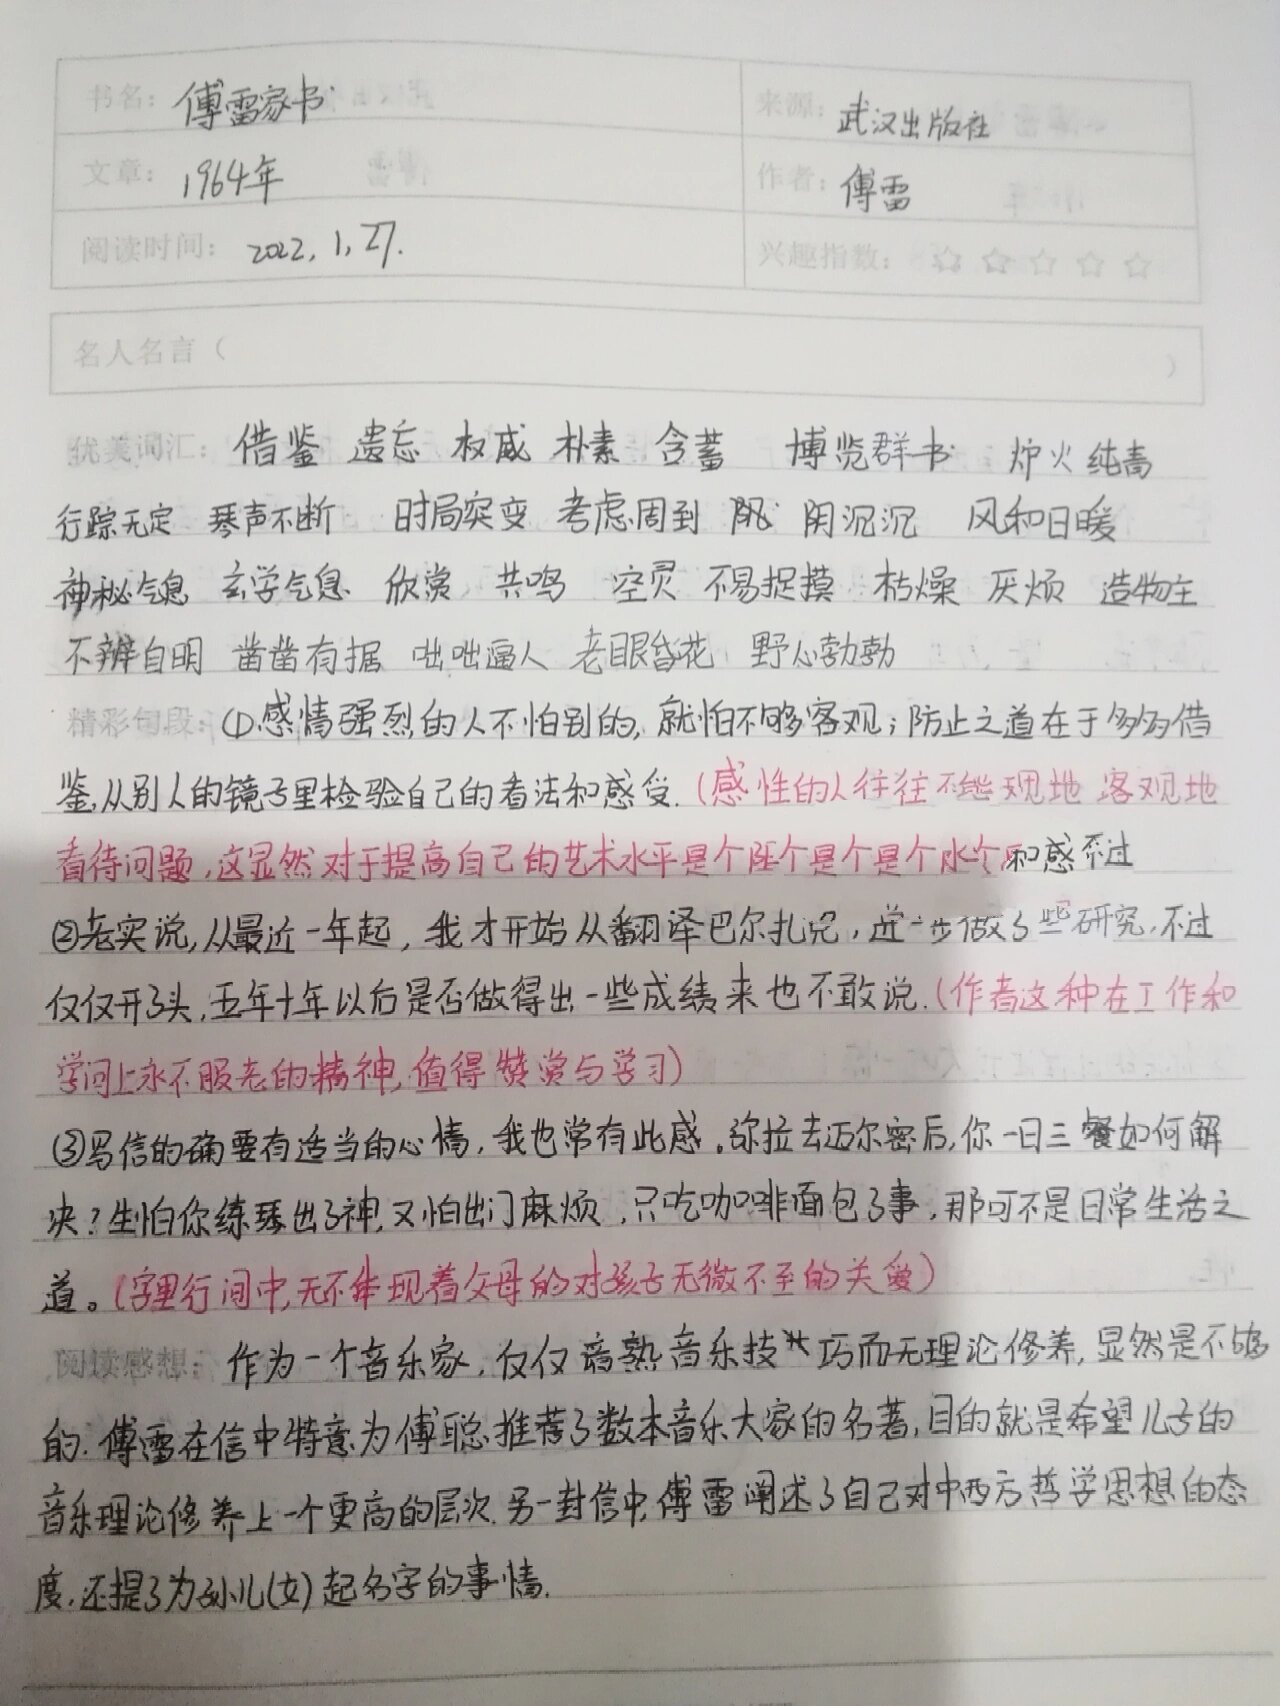 书名：傅雷家书
来源：武汉出版社
文章：1964年
作者：傅雷
阅读时间：2022.1.27.
兴趣指数：☆☆☆☆☆
名人名言（ ）
优美词汇：借鉴 遗忘 权威 朴素 含蓄 博览群书 炉火纯青
行踪无定 琴声不断 时局突变 考虑周到 阴沉沉 风和日暖
神秘气息 玄学气息 欣赏 共鸣 空灵 不易捉摸 枯燥 厌烦 造物主
不辨自明 凿凿有据 咄咄逼人 老眼昏花 野心勃勃
精彩句段：①感情强烈的人不怕别的，就怕不够客观；防止之道在于多多借
鉴，从别人的镜子里检验自己的看法和感受.（感性的人往往不能 客观地
看待问题，这显然对于提高自己的艺术水平是个 和感 不过
②老实说，从最近一年起，我才开始从翻译巴尔扎克，进一步做了些研究，不过
仅仅开了头，五年十年以后是否做得出一些成绩来也不敢说.（作者这种在工作和
学问上永不服老的精神，值得赞赏与学习）
③写信的确要有适当的心情，我也常有此感。弥拉去迈尔密后，你一日三餐如何解
决？生怕你练琴出了神，又怕出门麻烦，只吃咖啡面包了事，那可不是日常生活之
道。（字里行间中，无不体现着父母的对孩子无微不至的关爱）
阅读感想：作为一个音乐家，仅仅谙熟音乐技巧而无理论修养，显然是不够
的.傅雷在信中特意为傅聪推荐了数本音乐大家的名著，目的就是希望儿子的
音乐理论修养上一个更高的层次.另一封信中，傅雷阐述了自己对中西方哲学思想的态
度.还提了为孙儿(女)起名字的事情.